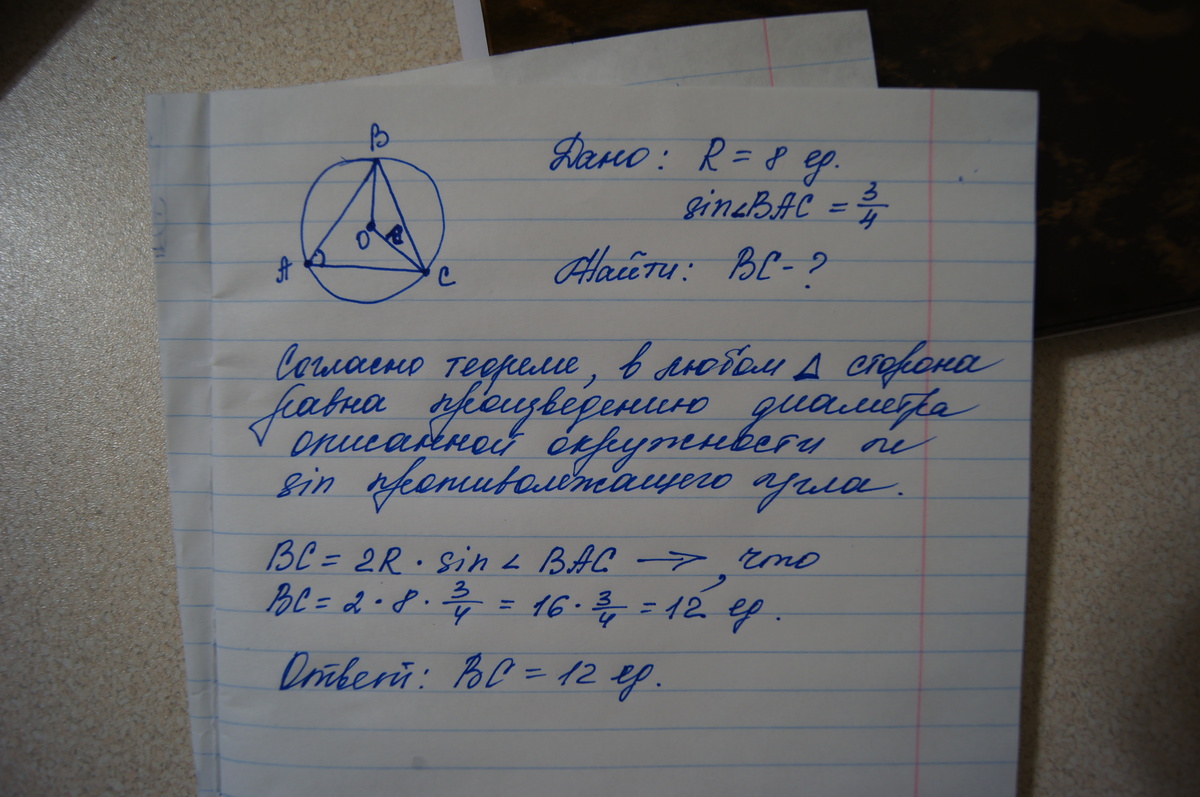 B
O
R
A
C
Дано: R = 8 ед.
sin∠BAC = 3/4
Найти: BC - ?
Согласно теореме, в любом Δ сторона
равна произведению диаметра
описанной окружности и
sin противолежащего угла.
BC = 2R · sin∠BAC →, что
BC = 2 · 8 · 3/4 = 16 · 3/4 = 12 ед.
Ответ: BC = 12 ед.